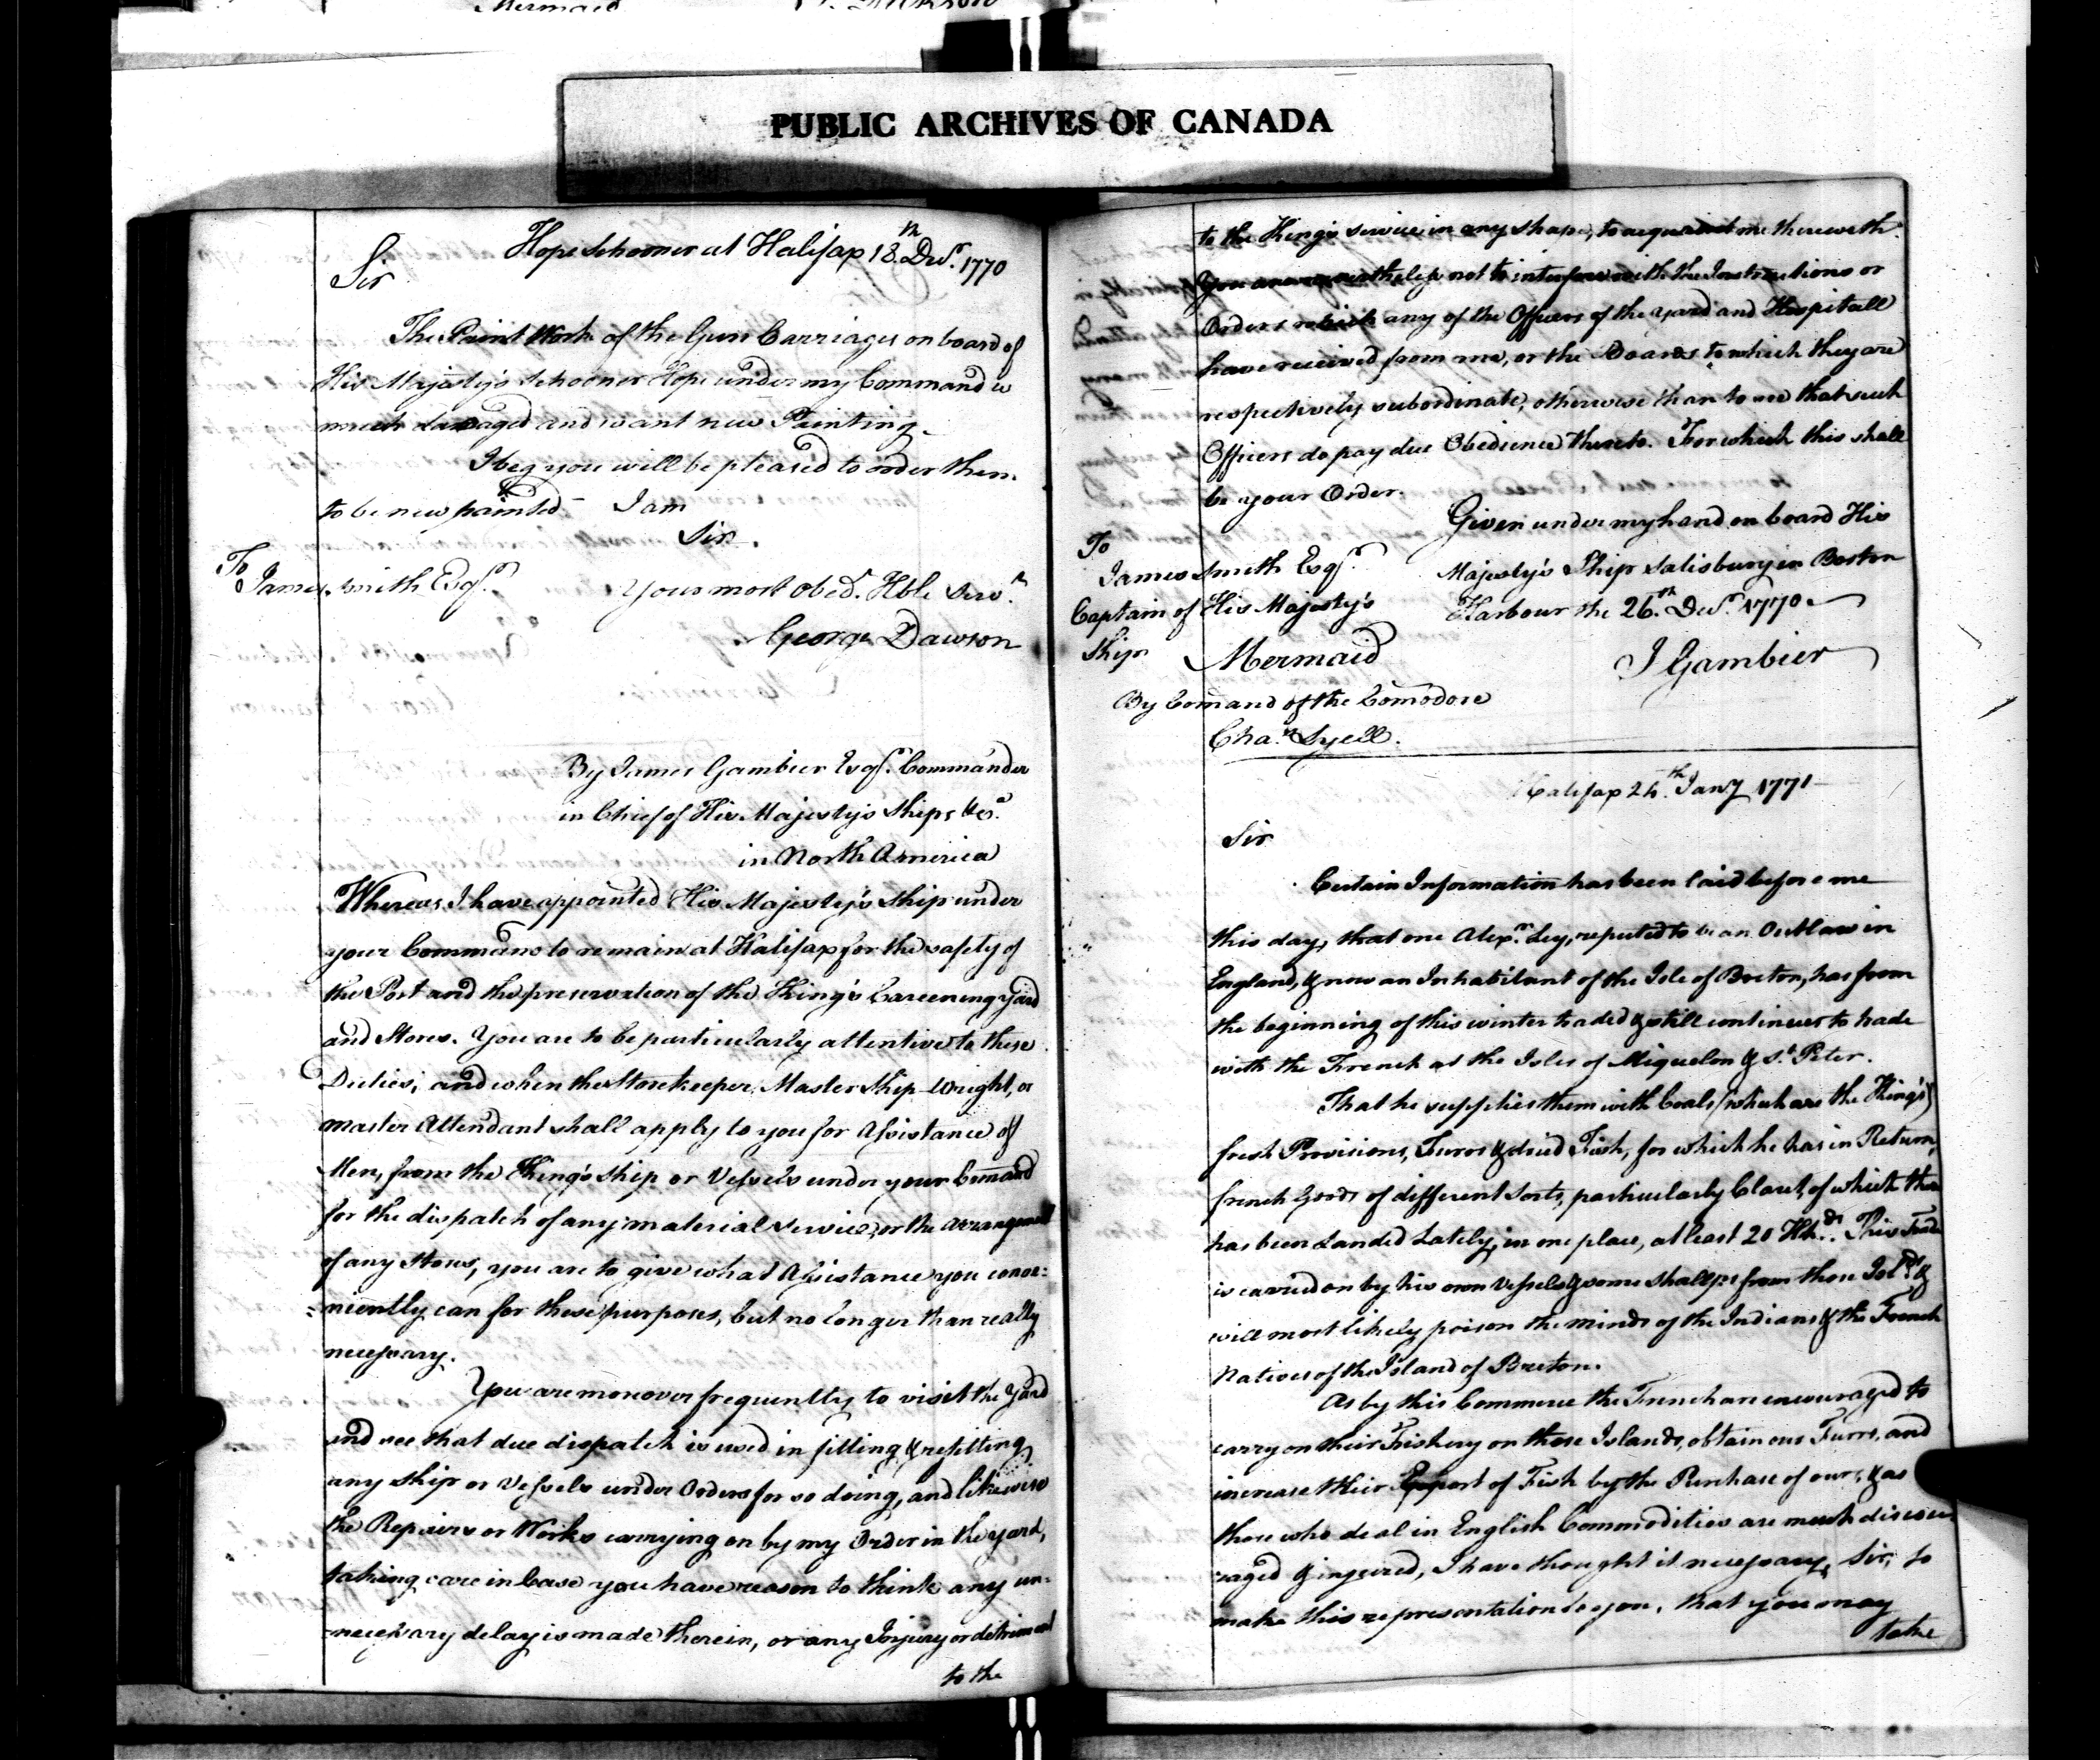 Mermaid
PUBLIC ARCHIVES OF CANADA
Hope Schooner at Halifax 18th. Decr. 1770
Sir
The Paint Work of the Gun Carriages on board of
His Majesty's Schooner Hope under my Command is
much damaged and want new Painting.
I beg you will be pleased to order them
to be new painted. I am
Sir.
To
James Smith Esqr. Your most Obedt. Hble Servt.
George Dawson
By James Gambier Esqr. Commander
in Chief of His Majesty's Ships &ca.
in North America
Whereas I have appointed His Majesty's Ship under
your Command to remain at Halifax for the safety of
the Port and the preservation of the King's Careening yard
and Stores. You are to be particularly attentive to these
Duties; and when the Storekeeper, Master Ship-Wright, or
Master Attendant shall apply to you for Assistance of
Men, from the King's Ship or Vessels under your Comand
for the dispatch of any material service, or the arrangement
of any Stores, you are to give what Assistance you conve:
:niently can for these purposes, but no longer than really
necessary.
You are moreover frequently to visit the Yard
and see that due dispatch is used in fitting & refitting
any Ship or Vessels under Orders for so doing, and likewise
the Repairs or Works carrying on by my Order in the yard,
taking care in Case you have reason to think any un-
-necessary delay is made therein, or any Injury or detriment
to the
to the King's service in any shape, to acquaint me therewith.
You are nevertheless not to interfere with the Instructions or
Orders which any of the Officers of the yard and Hospitall
have received from me, or the Boards to which they are
respectively subordinate, otherwise than to see that such
Officers do pay due Obedience thereto. For which this shall
be your Order.
Given under my hand on board His
Majesty's Ship Salisbury in Boston
Harbour the 26th. Decr. 1770
To
James Smith Esqr.
Captain of His Majesty's
Ship Mermaid
J Gambier
By Comand of the Comodore
Chas. Lyell.
Halifax 24th. Jany 1771
Sir
Certain Information has been laid before me
this day, that one Alexr. Ley, reputed to be an Outlaw in
England, & now an Inhabitant of the Isle of Breton, has from
the beginning of this winter traded & still continues to trade
with the French at the Isles of Miquelon & St. Peter.
That he supplies them with Coals (which are the King's)
fresh Provisions, Furrs & dried Fish, for which he has in Return,
french Goods of different Sorts, particularly Claret, of which there
has been Landed Lately, in one place, at least 20 Hhds. This Trade
is carried on by his own Vessels & some Shallops from those Islds. &
will most likely poison the minds of the Indians & the French
Natives of the Island of Breton.
As by this Commerce the French are encouraged to
carry on their Fishery on these Islands, obtain our Furrs, and
increase their Export of Fish by the Purchase of ours, & as
those who deal in English Commodities are much discou-
raged & injured, I have thought it necessary, Sir, to
make this representation to you, that you may
take